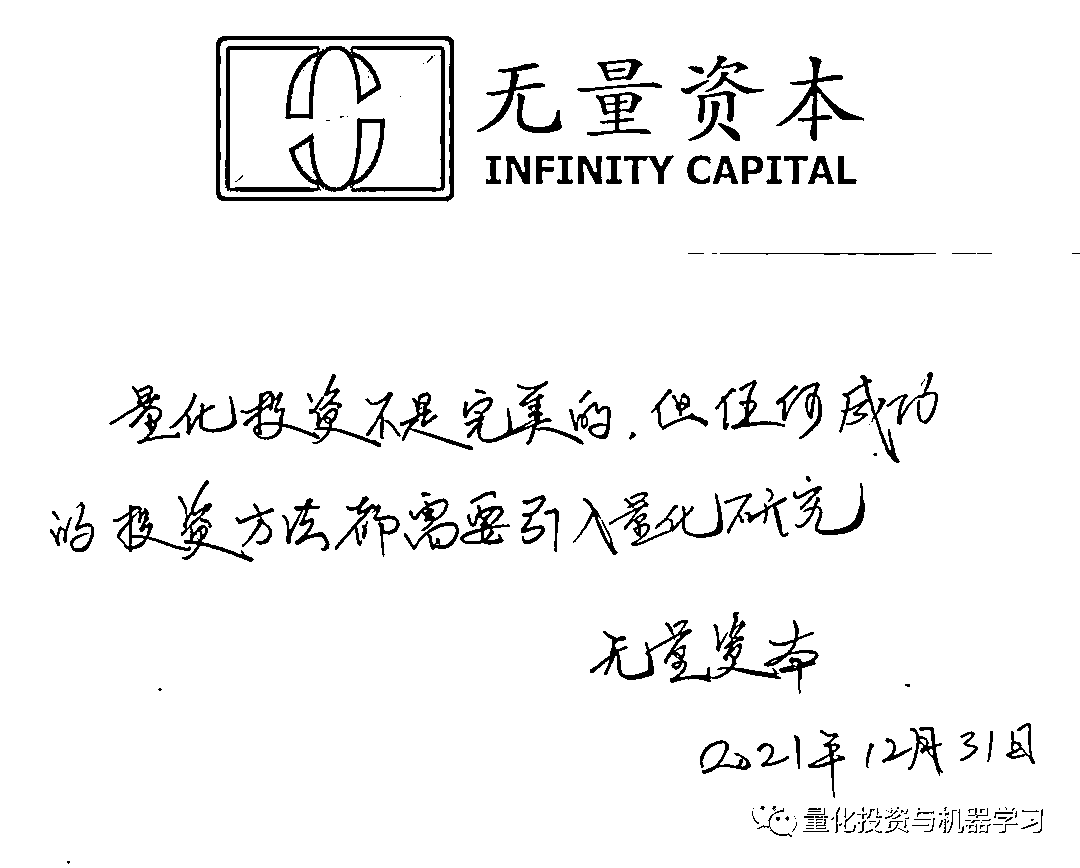 无量资本
INFINITY CAPITAL
量化投资不是完美的,但任何成功
的投资方法都需要引入量化研究
无量资本
2021年12月31日
量化投资与机器学习